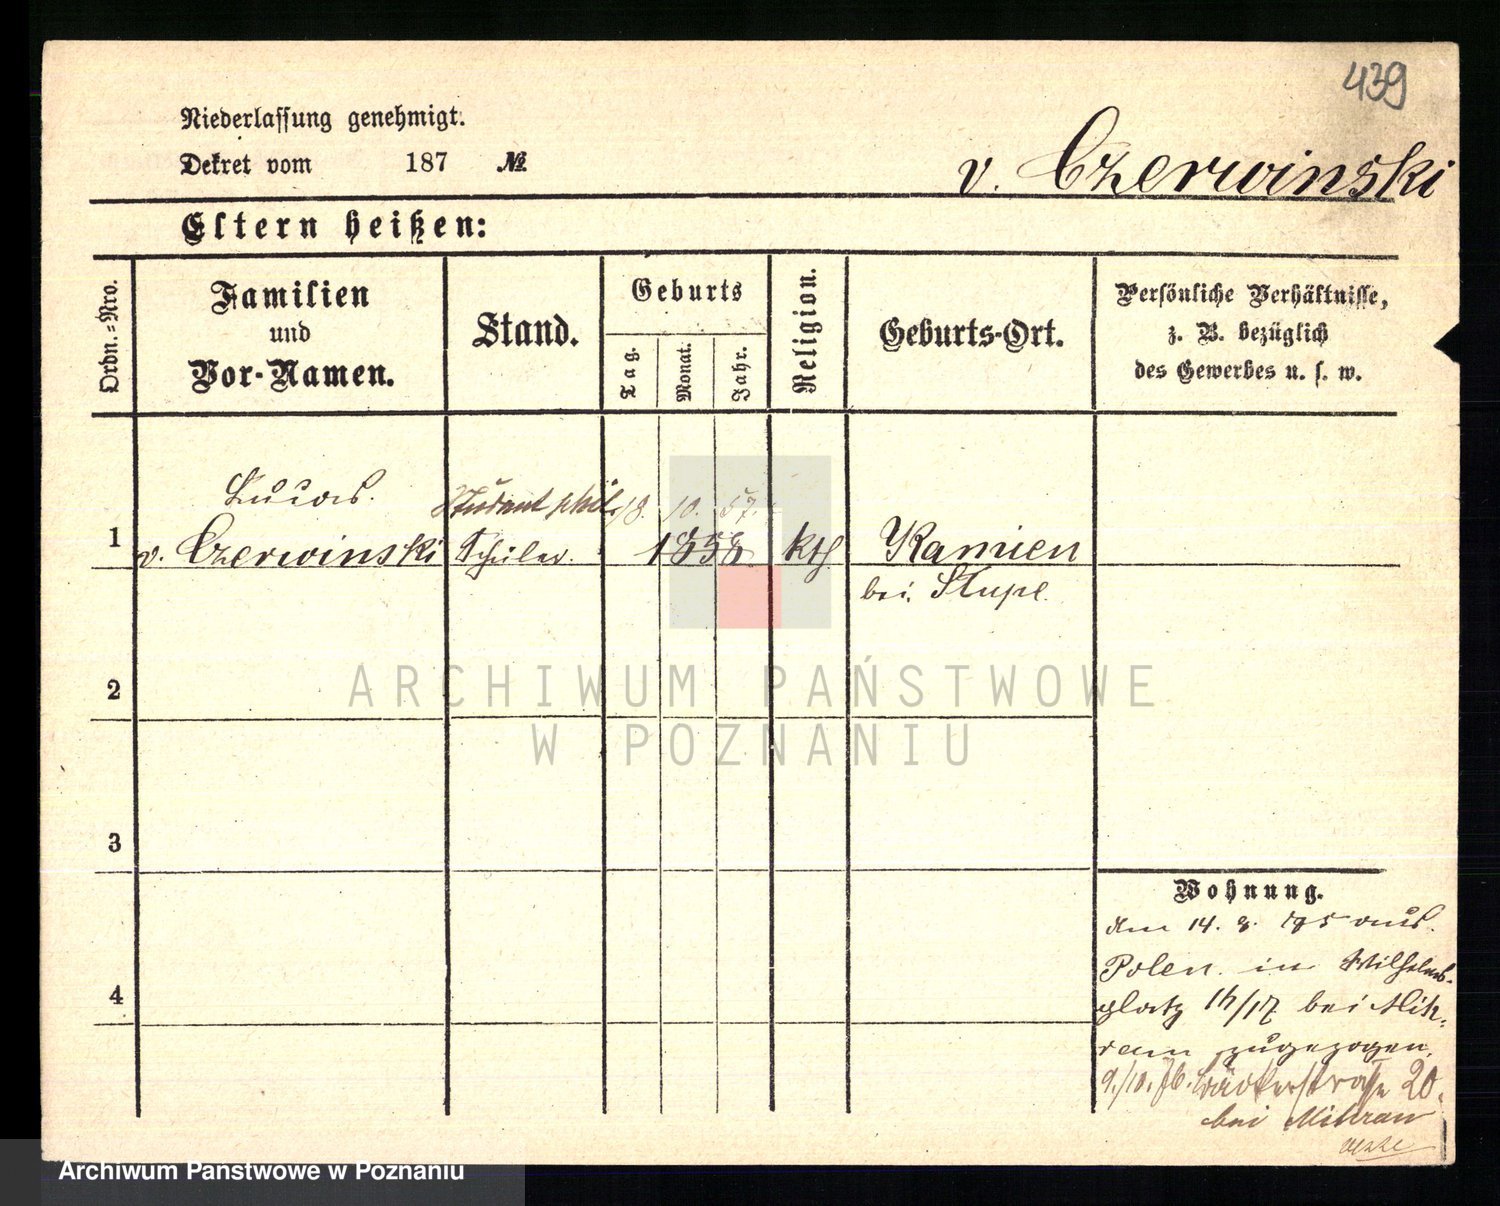 439
Niederlassung genehmigt.
Dekret vom 187 №
v. Czerwinski
Eltern heißen:
Ordn.=Nro.
Familien
und
Vor-Namen.
Stand.
Geburts
Tag.
Monat.
Jahr.
Religion.
Geburts-Ort.
Persönliche Verhältnisse,
z. B. bezüglich
des Gewerbes u. s. w.
1
Lucas.
v. Czerwinski
Student phil.
Schüler.
18. 10. 57.
1858
kth
Kamien
bei Slupe
2
3
4
Wohnung.
den 14. 8. 75 aus
Polen in Wilhelms-
platz 16/17 bei Mik-
ram zugezogen.
9./10. 76. Bäckerstraße 20.
bei Mikram
ARCHIWUM PAŃSTWOWE
W POZNANIU
Archiwum Państwowe w Poznaniu